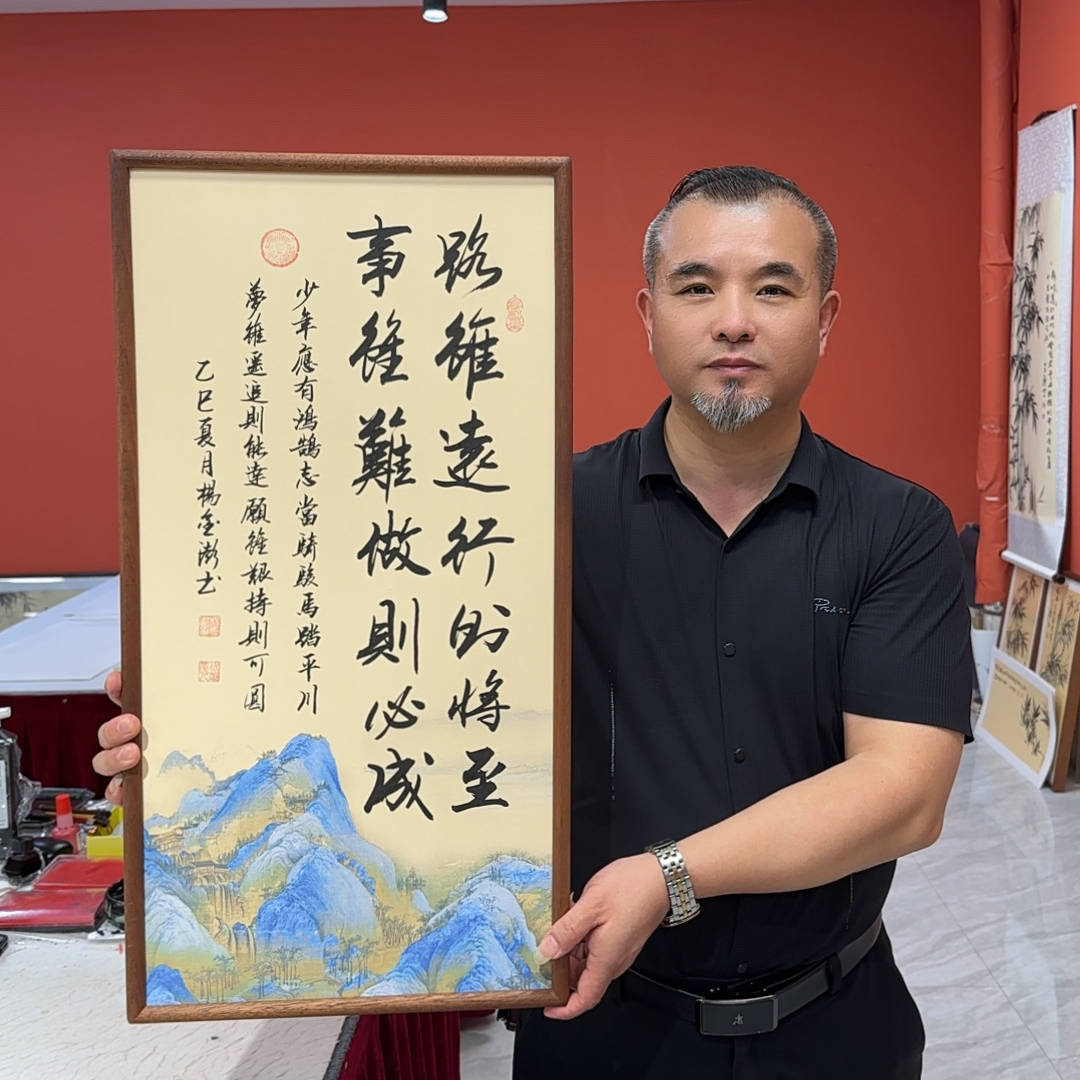 路雖遠行則將至
事雖難做則必成
少年應有鴻鵠志當騎駿馬踏平川
夢雖遥追則能達願雖艱持則可圓
乙巳夏月楊金书